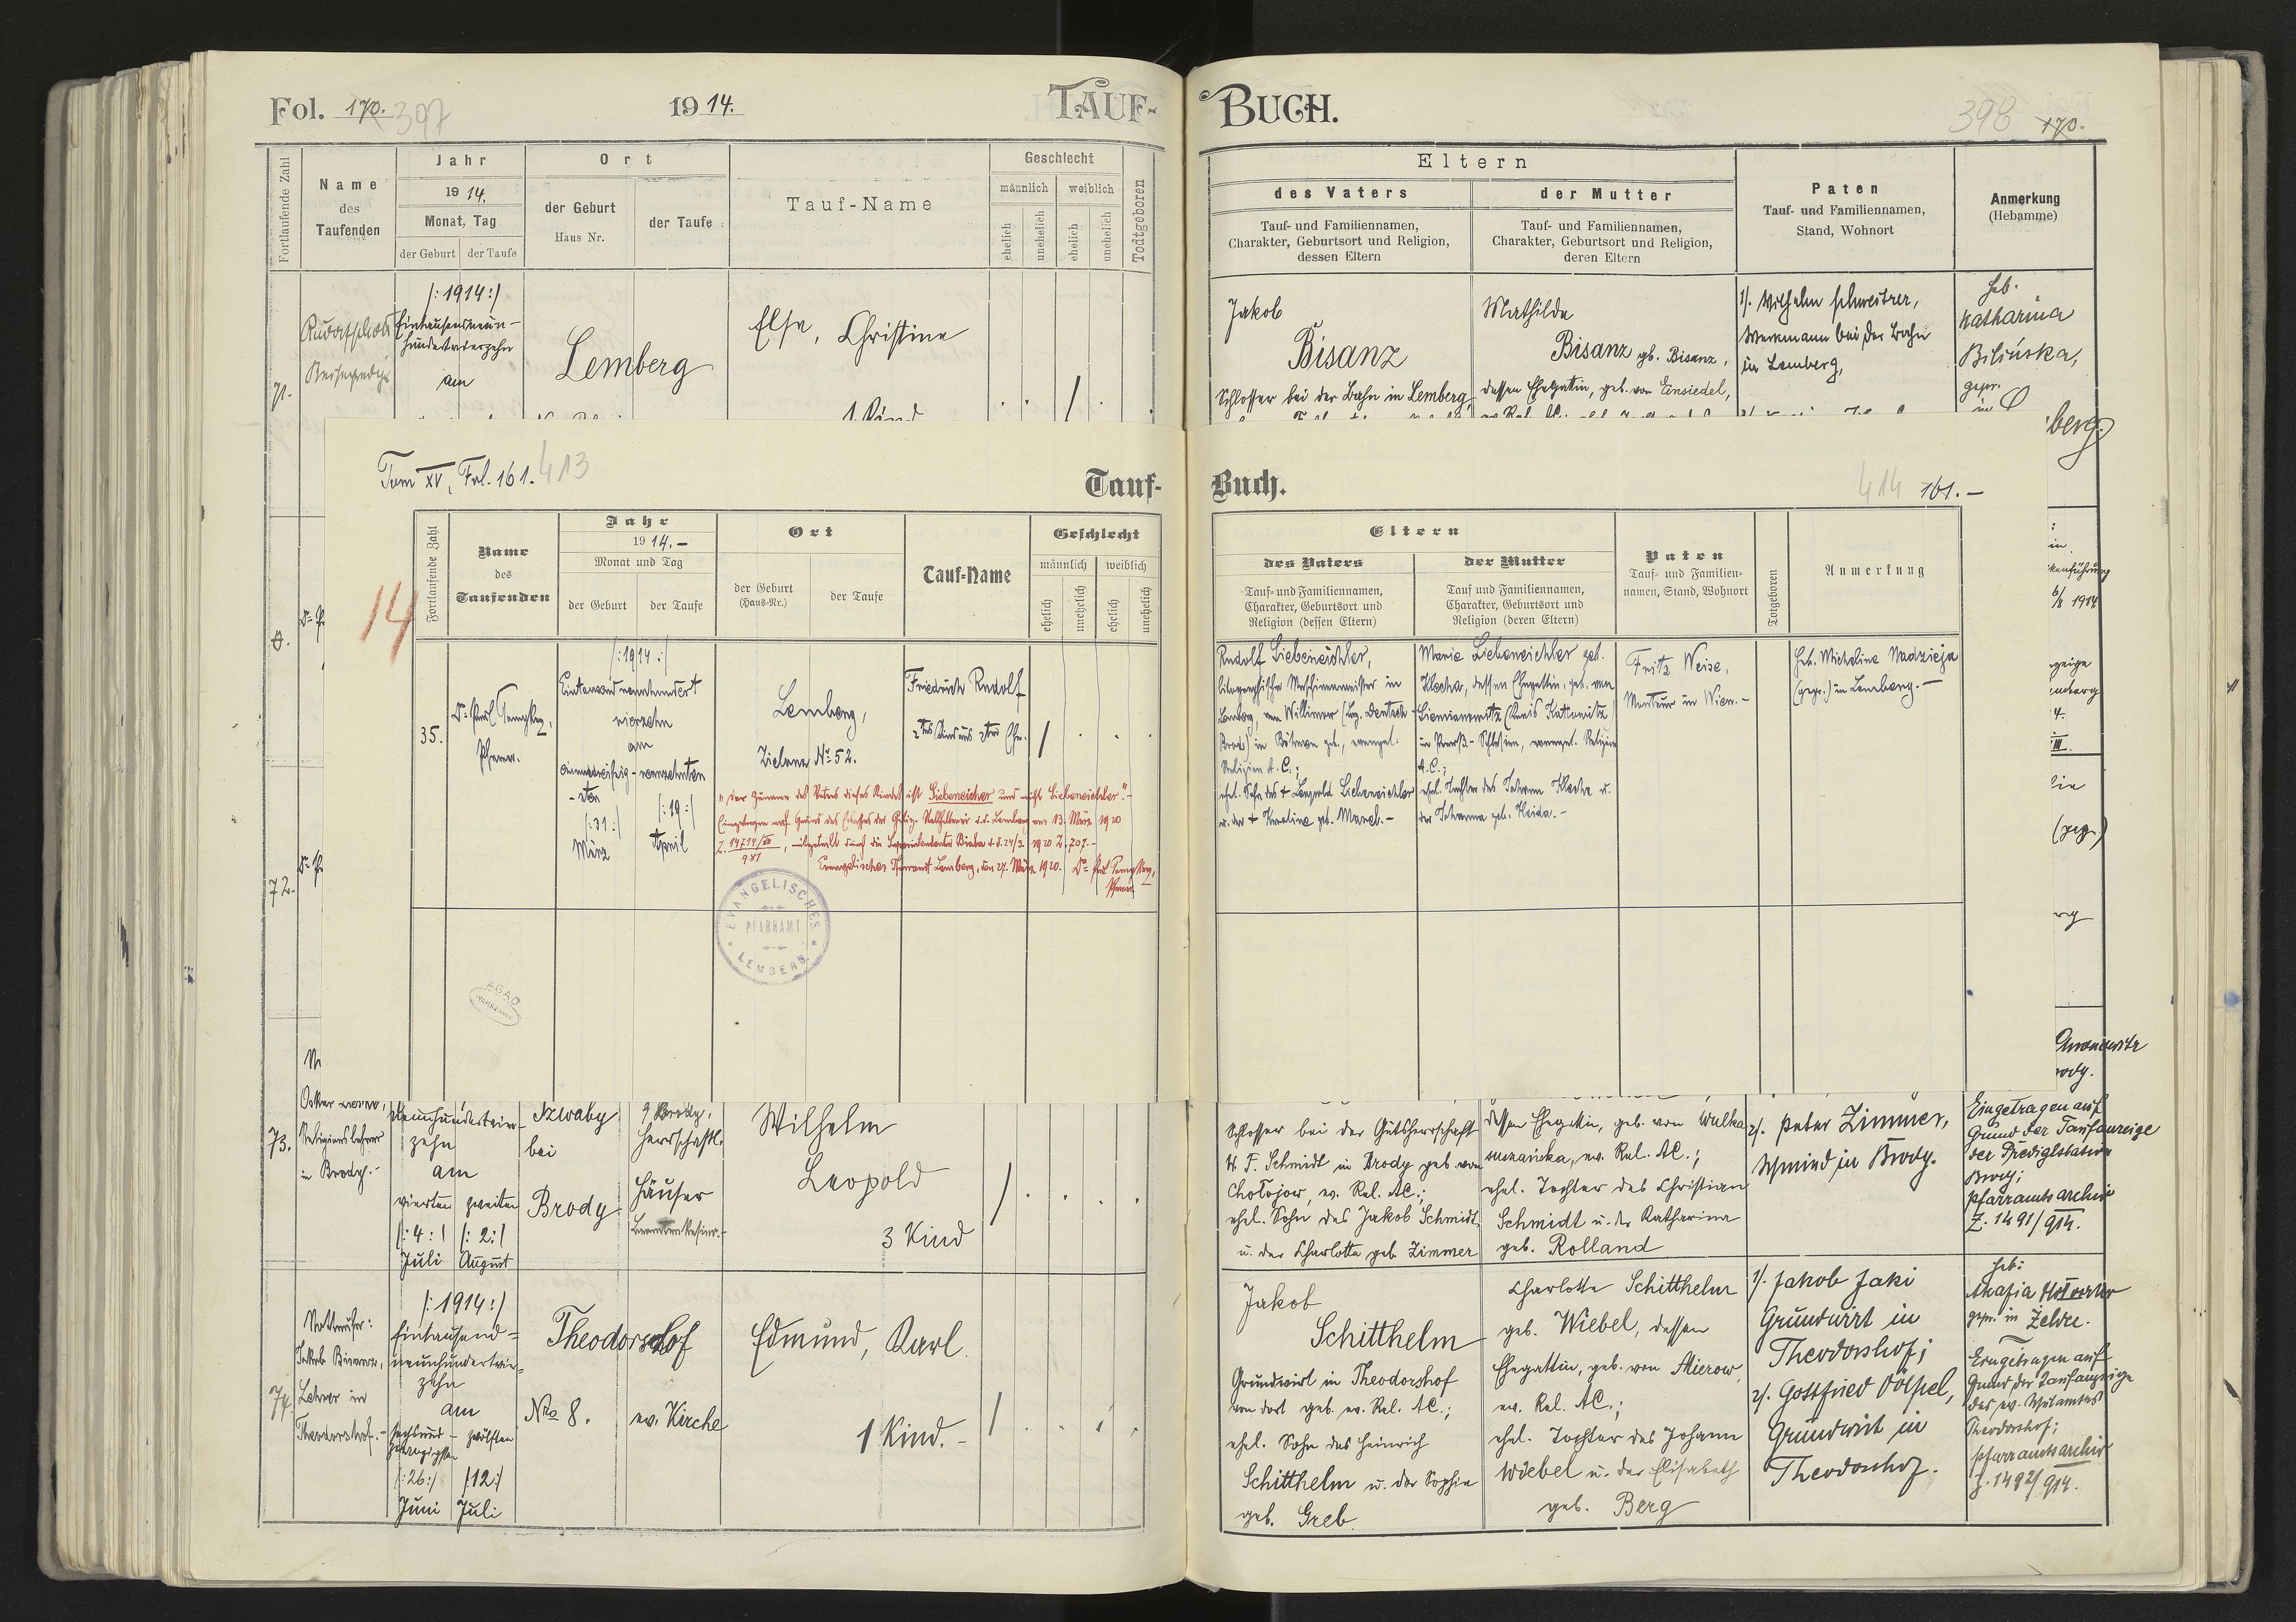 Fol. 170. 397
1914.
TAUF-
BUCH.
398 170.
Fortlaufende Zahl
Name
des
Taufenden
Jahr
1914.
Monat, Tag
der Geburt
der Taufe
Ort
der Geburt
Haus Nr.
der Taufe
Tauf-Name
Geschlecht
männlich
weiblich
ehelich
unehelich
ehelich
unehelich
Todtgeboren
Eltern
des Vaters
Tauf- und Familiennamen,
Charakter, Geburtsort und Religion,
dessen Eltern
der Mutter
Tauf- und Familiennamen,
Charakter, Geburtsort und Religion,
deren Eltern
Paten
Tauf- und Familiennamen,
Stand, Wohnort
Anmerkung
(Hebamme)
71.
/:1914:/
Eintausendneun-
hundertvierzehn
am
Lemberg
Else, Christine
1 Kind
Jakob
Bisanz
Schlosser bei der Bahn in Lemberg,
Mathilde
Bisanz gb. Bisanz,
dessen Ehegattin, geb. von Einsiedel,
1/. Wilhelm Schweitzer,
Werkmann bei der Bahn
in Lemberg,
Heb.
Katharina
Bilińska,
gepr.
in
berg
Tom XV, Fol. 161. 413
Tauf-
Buch.
414 161.-
14
Fortlaufende Zahl
Name
des
Taufenden
Jahr
1914.-
Monat und Tag
der Geburt
der Taufe
Ort
der Geburt
(Haus-Nr.)
der Taufe
Tauf-Name
Geschlecht
männlich
weiblich
ehelich
unehelich
ehelich
unehelich
Eltern
des Vaters
Tauf- und Familiennamen,
Charakter, Geburtsort und
Religion (dessen Eltern)
der Mutter
Tauf und Familiennamen,
Charakter, Geburtsort und
Religion (deren Eltern)
Paten
Tauf- und Familien-
namen, Stand, Wohnort
Totgeboren
Anmerkung
35.
Pfarrer.
/:1914:/
Eintausendneunhundert
vierzehn
am
einunddreißig- neunzehnten
-sten
/:31:/ /:19:/
März April
Lemberg,
Zielona No 52.
Friedrich Rudolf
2tes Kind aus 2ter Ehe.
Rudolf Liebeneichler,
Lemberg, von Willimow (Bez. Deutsch-
Brod) in Böhmen geb., evangel.
Religion A.C.;
ehel. Sohn des + Leopold Liebeneichler
u. der + Karoline geb. Marek.-
Marie Liebeneichler geb.
Klecha, dessen Ehegattin, geb. von
Siemianowitz (Kreis Kattowitz)
in Preuß.-Schlesien, evangel. Religion
A.C.;
ehel. Tochter des Johann Klecha u.
der Johanna geb. Kaida.-
Fritz Weise,
Monteur in Wien.-
Heb. Michaline Nadzieja
(gepr.) in Lemberg.-
"Der Zuname des Vaters dieses Kindes ist Siebeneicher und nicht Liebeneichler."-
Eingetragen auf Grund des Erlasses der Galiz. Statthalterei d.d. Lemberg vom 13. März 1920
Z. 14714/XII
981
, mitgeteilt durch die Superintendentur Biala d.d. 24/3. 1920 Z. 707.-
Evangelisches Pfarramt Lemberg, den 27. März 1920.
Pfarrer
EVANGELISCHES
PFARRAMT
LEMBERG
AGAD
WARSZAWA
72.
6/8 1914
(gepr.)
73.
Religionslehrer
in Brody.-
neunhundertvier-
zehn
am
vierten zweiten
/:4:/ /:2:/
Juli August
Szwaby
bei
Brody
Brody,
herrschaftl.
Häuser
Wilhelm
Leopold
3 Kind
Schlosser bei der Gutsherrschaft
H. F. Schmidt in Brody geb von
Chołojow, ev. Rel. AC.;
ehel. Sohn des Jakob Schmidt
u. der Charlotte geb. Zimmer
dessen Ehegattin, geb. von Wulka
suszańska, ev. Rel. AC.;
ehel. Tochter des Christian
Schmidt u. der Katharina
geb. Rolland
2/. Peter Zimmer,
Schmied in Brody.
Eingetragen auf
Grund der Taufanzeige
der Predigtstation
Brody;
Pfarramtsarchiv
Z. 1491/914.
74.
Nottaufer:
Jakob Bisanz,
Lehrer in
Theodorshof.-
/:1914:/
Eintausend-
neunhundertvier-
zehn
am
sechsund- zwölften
zwanzigsten
/:26:/ /:12:/
Juni Juli
Theodorshof
No 8.
ev. Kirche
Edmund, Karl.
1 Kind.-
Jakob
Schitthelm
Grundwirt in Theodorshof
von dort geb. ev. Rel. AC.;
ehel. Sohn des Heinrich
Schitthelm u. der Sophie
geb. Greb.
Charlotte Schitthelm
geb. Wiebel, dessen
Ehegattin, geb. von Mierow,
ev. Rel. AC.;
ehel. Tochter des Johann
Wiebel u. der Elisabeth
geb. Berg
1/. Jakob Jaki
Grundwirt in
Theodorshof;
2/. Gottfried Völpel,
Grundwirt in
Theodorshof.
Heb:
gepr. in Żelдec.
Eingetragen auf
Grund der Taufanzeige
des ev. Schulamtes
Theodorshof;
Pfarramtsarchiv
Z. 1492/914.